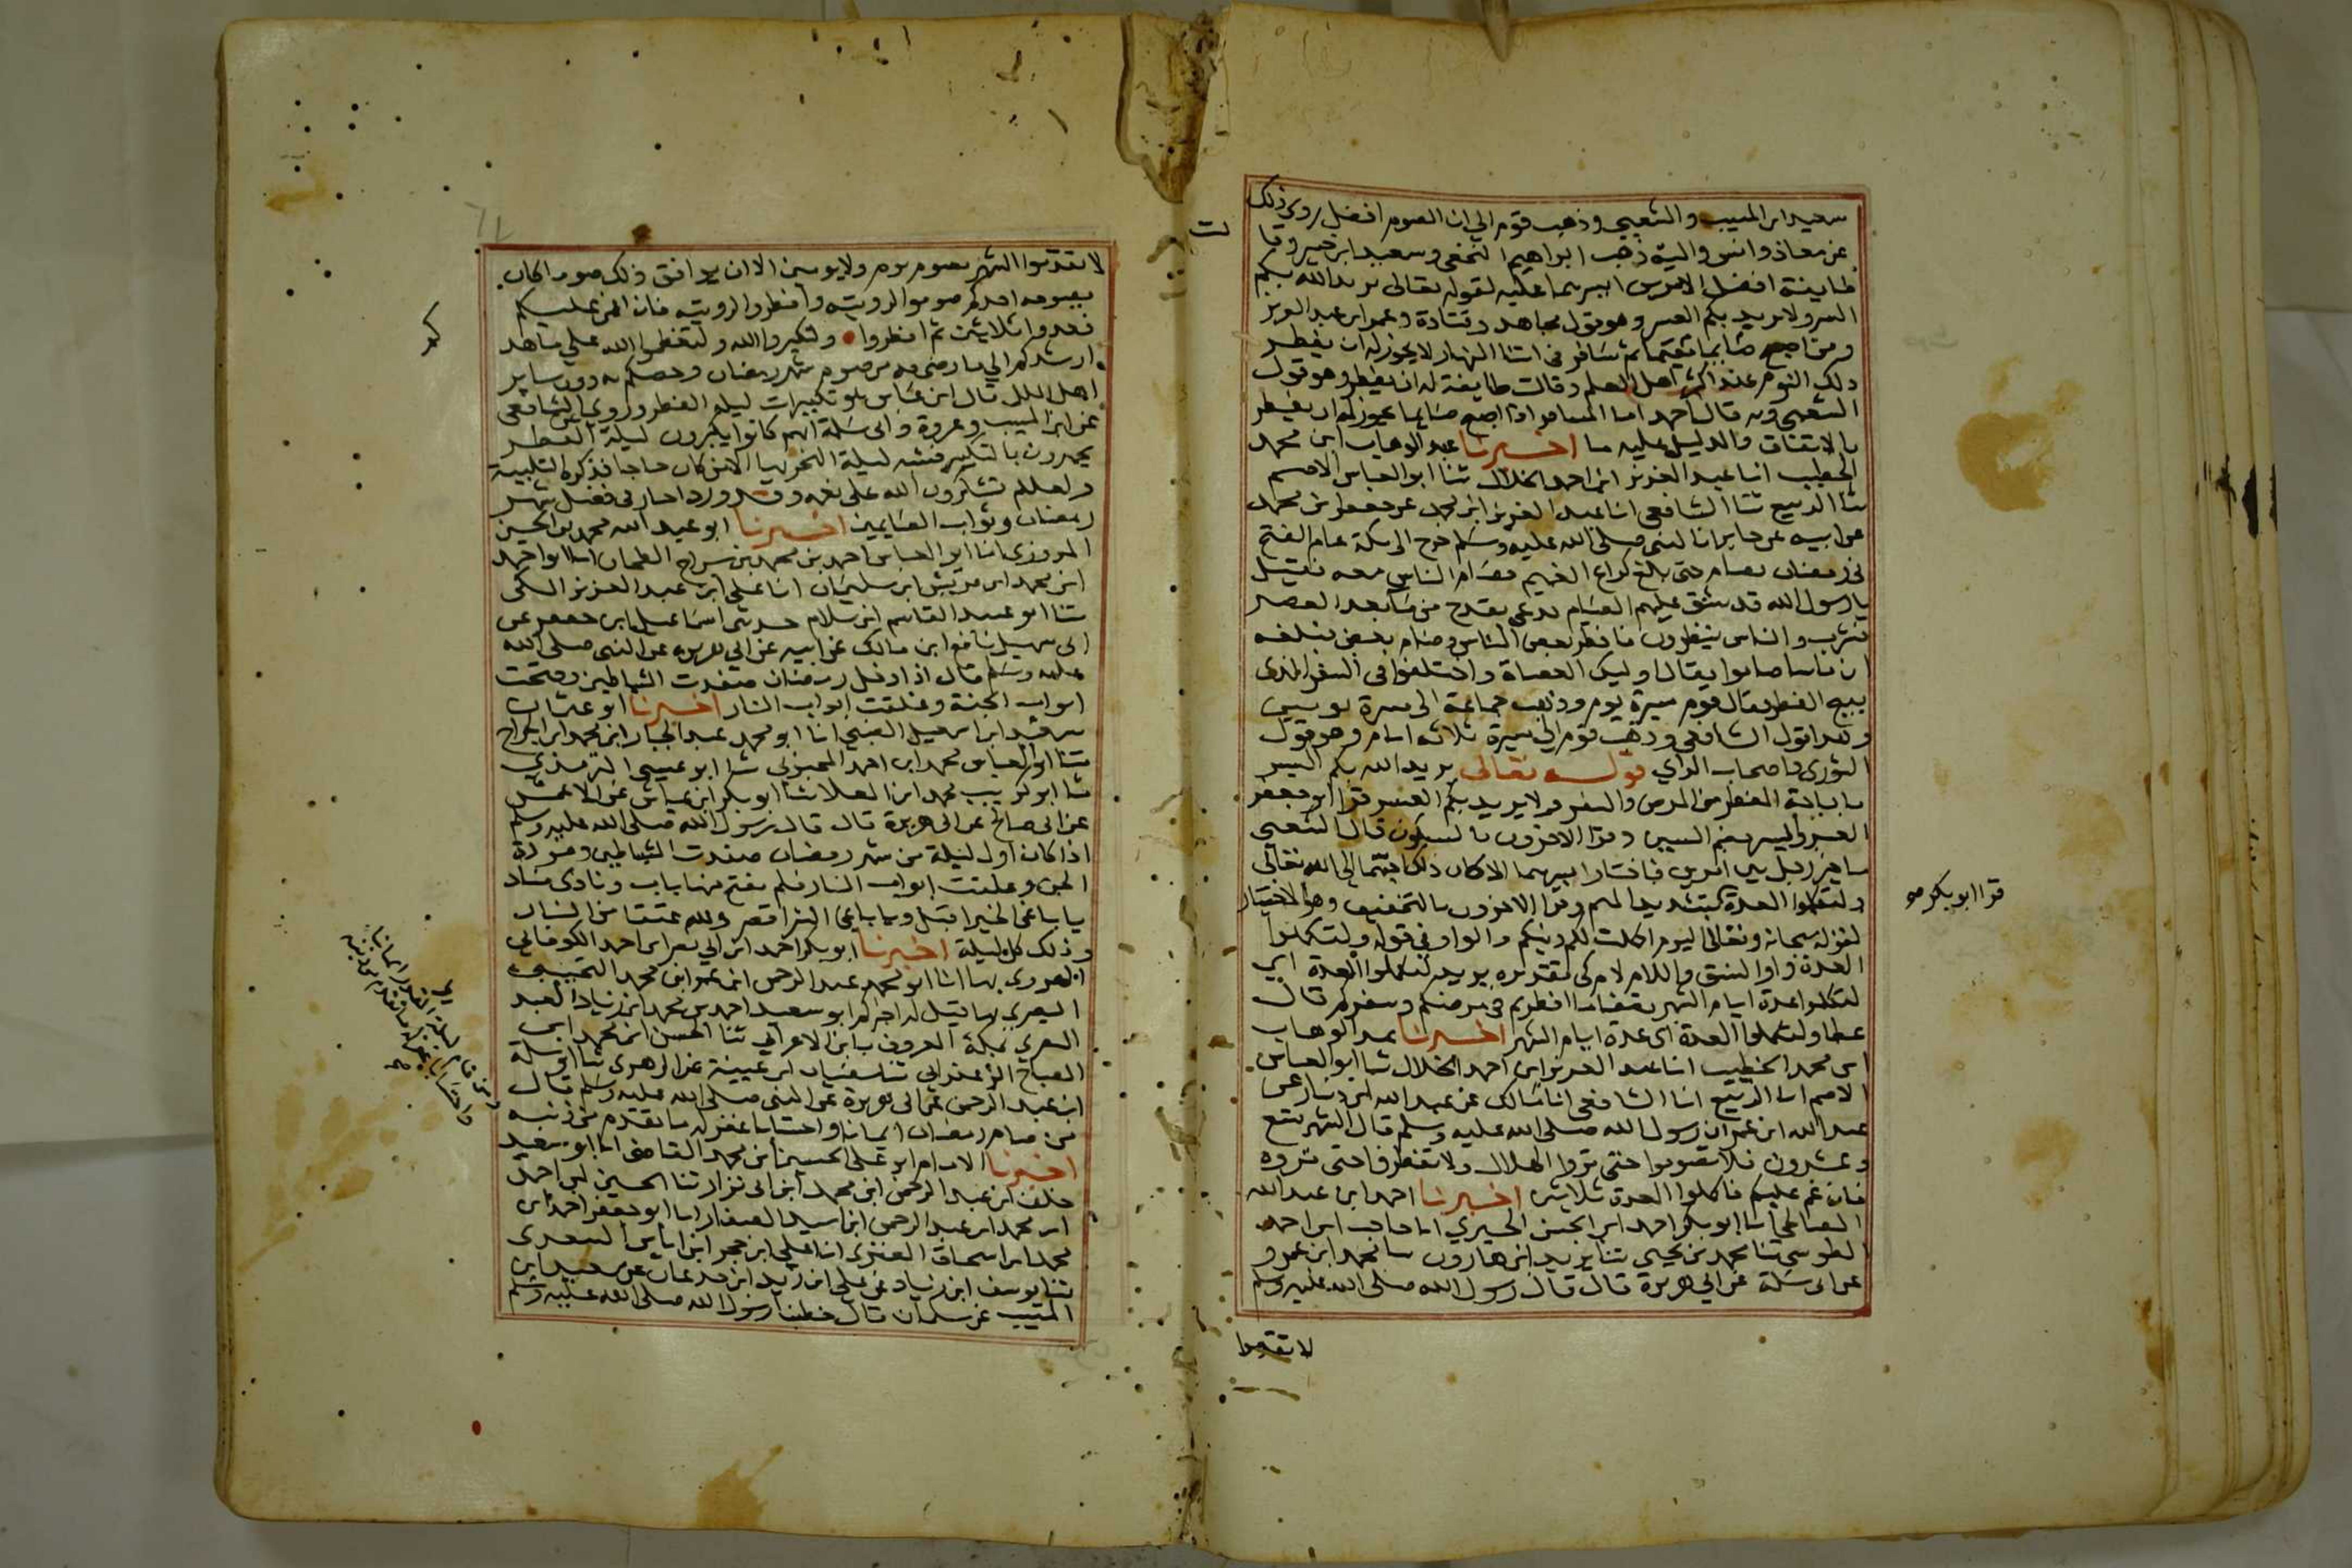 سعيد ابن المسيب والشعبي وذهب قوم الي ان الصوم افضل روي ذلك
عن معاذ وانس واليه ذهب ابراهيم النخعي وسعيد ابن جبير وقا
طايفة افضل الامرين ايسرهما عليه لقوله تعالى يريد الله بكم
اليسر ولا يريد بكم العسر وهو قول مجاهد وقتادة وعمر ابن عبد العزيز
ومن اصبح صايما مقيما ثم سافر في اثنا النهار لا يجوز له ان يفطر
ذلك اليوم عند اكثر اهل العلم وقالت طايفة له ان يفطر وهو قول
الشعبي وبه قال احمد اما المسافر اذا اصبح صايما يجوز له ان يفطر
بالاتفاق والدليل عليه ما اخبرنا عبد الوهاب ابن محمد
الخطيب انا عبد العزيز ابن احمد الخلال ثنا ابو العباس الاصم
ثنا الربيع ثنا الشافعي انا عبد العزيز ابن محمد عن جعفر بن محمد
عن ابيه عن جابر ان النبي صلى الله عليه وسلم خرج الى مكة عام الفتح
في رمضان فصام حتى بلغ كراع الغميم فصام الناس معه فقيل
يا رسول الله قد شق عليهم الصيام فدعى بقدح من ما بعد العصر
فشرب والناس ينظرون فافطر بعض الناس وصام بعض فبلغه
ان ناسا صاموا فقال اوليك العصاة واختلفوا في السفر الذي
يبيح الفطر فقال قوم مسيرة يوم وذهب جماعة الى مسيرة يومين
وهو قول الشافعي وذهب قوم الي مسيرة ثلاثه ايام وهو قول
الثوري واصحاب الراي قوله تعالى يريد الله بكم اليسر
باباحة الفطر في المرض والسفر ولا يريد بكم العسر قرا ابو جعفر
العسر واليسر بضم السين وقرا الاخرون بالسكون قال الشعبي
ما خير رجل بين امرين فاختار ايسرهما الا كان ذلك احبهما الى الله تعالى
ولتكملوا العدة بتشديد الميم وقرا الاخرون بالتخفيف وهو الاختيار
لقوله سبحانه وتعالى اليوم اكملت لكم دينكم والواو في قوله ولتكملوا
العدة واو النسق واللام لام كي تقديره يريد لتكملوا العدة اي
لتكملوا عدة ايام الشهر بقضا ما افطرتم في مرضكم وسفركم قال
عطا ولتكملوا العدة اى عدة ايام الشهر اخبرنا عبد الوهاب
ابن محمد الخطيب انا عبد العزيز ابن احمد الخلال ثنا ابو العباس
الاصم انا الربيع انا الشافعي انا مالك عن عبد الله ابن دينار عن
عبد الله ابن عمر ان رسول الله صلى الله عليه وسلم قال الشهر تسع
وعشرون فلا تصوموا حتى تروا الهلال ولا تفطروا حتى تروه
فان غم عليكم فاكملوا العدة ثلاثين اخبرنا احمد ابن عبد الله
الصالحي انا ابو بكر احمد ابن الحسن الحيري انا حاجب ابن احمد
الطوسي ثنا محمد بن يحيى ثنا يزيد ابن هارون انا محمد ابن عمرو
عن ابي سلمة عن ابي هريرة قال قال رسول الله صلى الله عليه وسلم
لا تقدموا
قرا ابو بكر
لا تقدموا الشهر بصوم يوم ولا يومين الا ان يوافق ذلك صوما كان
يصومه احدكم صوموا لرويته وافطروا لرويته فان غم عليكم
فعدوا ثلاثين ثم افطروا ولتكبروا الله ولتعظموا الله على ما هد
ارشدكم الي ما رضي به من صوم شهر رمضان وخصكم به دون ساير
اهل الملل قال ابن عباس هو تكبيرات ليلة الفطر وروي الشافعي
عن ابن المسيب وعروة وابي سلمة انهم كانوا يكبرون ليلة الفطر
يجهرون بالتكبير وشبه ليلة النحر بها الا من كان حاجا فذكره التلبية
ولعلكم تشكرون الله على نعمه وقد ورد اخبار في فضل شهر
رمضان وثواب الصايمين اخبرنا ابو عبد الله محمد بن الحسين
المروزي انا ابو العباس احمد بن محمد بن سراج الطحان انا ابو احمد
ابن محمد ابن قريش ابن سليمان انا علي ابن عبد العزيز المكي
ثنا ابو عبيد القاسم ابن سلام حدثني اسماعيل ابن جعفر عن
ابي سهيل نافع ابن مالك عن ابيه عن ابي هريره عن النبي صلى الله
عليه وسلم قال اذا دخل رمضان صفدت الشياطين وفتحت
ابواب الجنة وغلقت ابواب النار اخبرنا ابو عثمان
سعيد ابن اسمعيل الضبي انا ابو محمد عبد الجبار ابن محمد ابن الجراح
ثنا ابو العباس محمد ابن احمد المحبوبي ثنا ابو عيسى الترمذي
ثنا ابو كريب محمد ابن العلا ثنا ابو بكر ابن عياش عن الاعمش
عن ابي صالح عن ابي هريرة قال قال رسول الله صلى الله عليه وسلم
اذا كان اول ليلة من شهر رمضان صفدت الشياطين ومردة
الجن وغلقت ابواب النار فلم يفتح منها باب ونادى مناد
يا باغي الخير اقبل ويا باغي الشر اقصر ولله عتقا من النار
وذلك كل ليلة اخبرنا ابو بكر احمد ابن ابي نصر ابن احمد الكوفاني
الهروي بها انا ابو محمد عبد الرحمن ابن عمر ابن محمد التجيبي
المصري بها قيل له اخبركم ابو سعيد احمد بن محمد ابن زياد العبد
البصري بمكة المعروف بابن الاعرابي ثنا الحسن ابن محمد ابن
الصباح الزعفراني ثنا سفيان ابن عيينة عن الزهري ثنا ابو سلمة
ابن عبد الرحمن عن ابي هريرة عن النبي صلى الله عليه وسلم قال
من صام رمضان ايمانا واحتسابا غفر له ما تقدم من ذنبه
اخبرنا الامام ابو علي الحسين ابن محمد القاضي انا ابو سعيد
خلف ابن عبد الرحمن ابن محمد ابن ابي نزار ثنا الحسين ابن احمد
ابن محمد ابن عبد الرحمن ابن اسيد الصفار انا ابو جعفر احمد ابن
محمد ابن اسحاق العنزي انا علي ابن حجر ابن اياس السعدي
ثنا يوسف ابن زياد عن علي ابن زيد ابن جدعان عن سعيد ابن
المسيب عن سلمان قال خطبنا رسول الله صلى الله عليه وسلم
ومن قام ليلة القدر ايمانا
واحتسابا غفر له ما تقدم من ذنبه